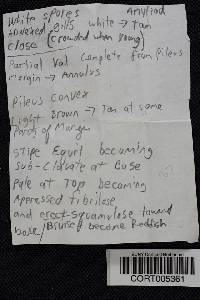 White spores Amyliod
Adnexed gills white → tan
close (crowded when young)
Partial Val complete from Pileus
Margin → Annulus
Pileus Convex
Light Brown → Tan at some
Parts of Margen
Stipe Equil becoming
Sub-Clavate at Base
Pale at Top becoming
Appressed fibrilose
and erect-squamulose toward
base/Bruised become Redish
CORT005361